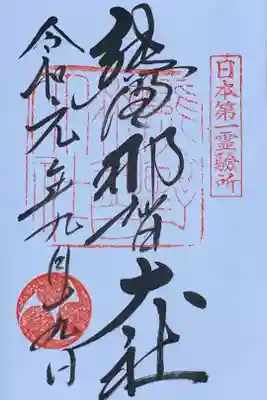 日本第一霊驗所
熊野那智大社
令和元年九月十九日